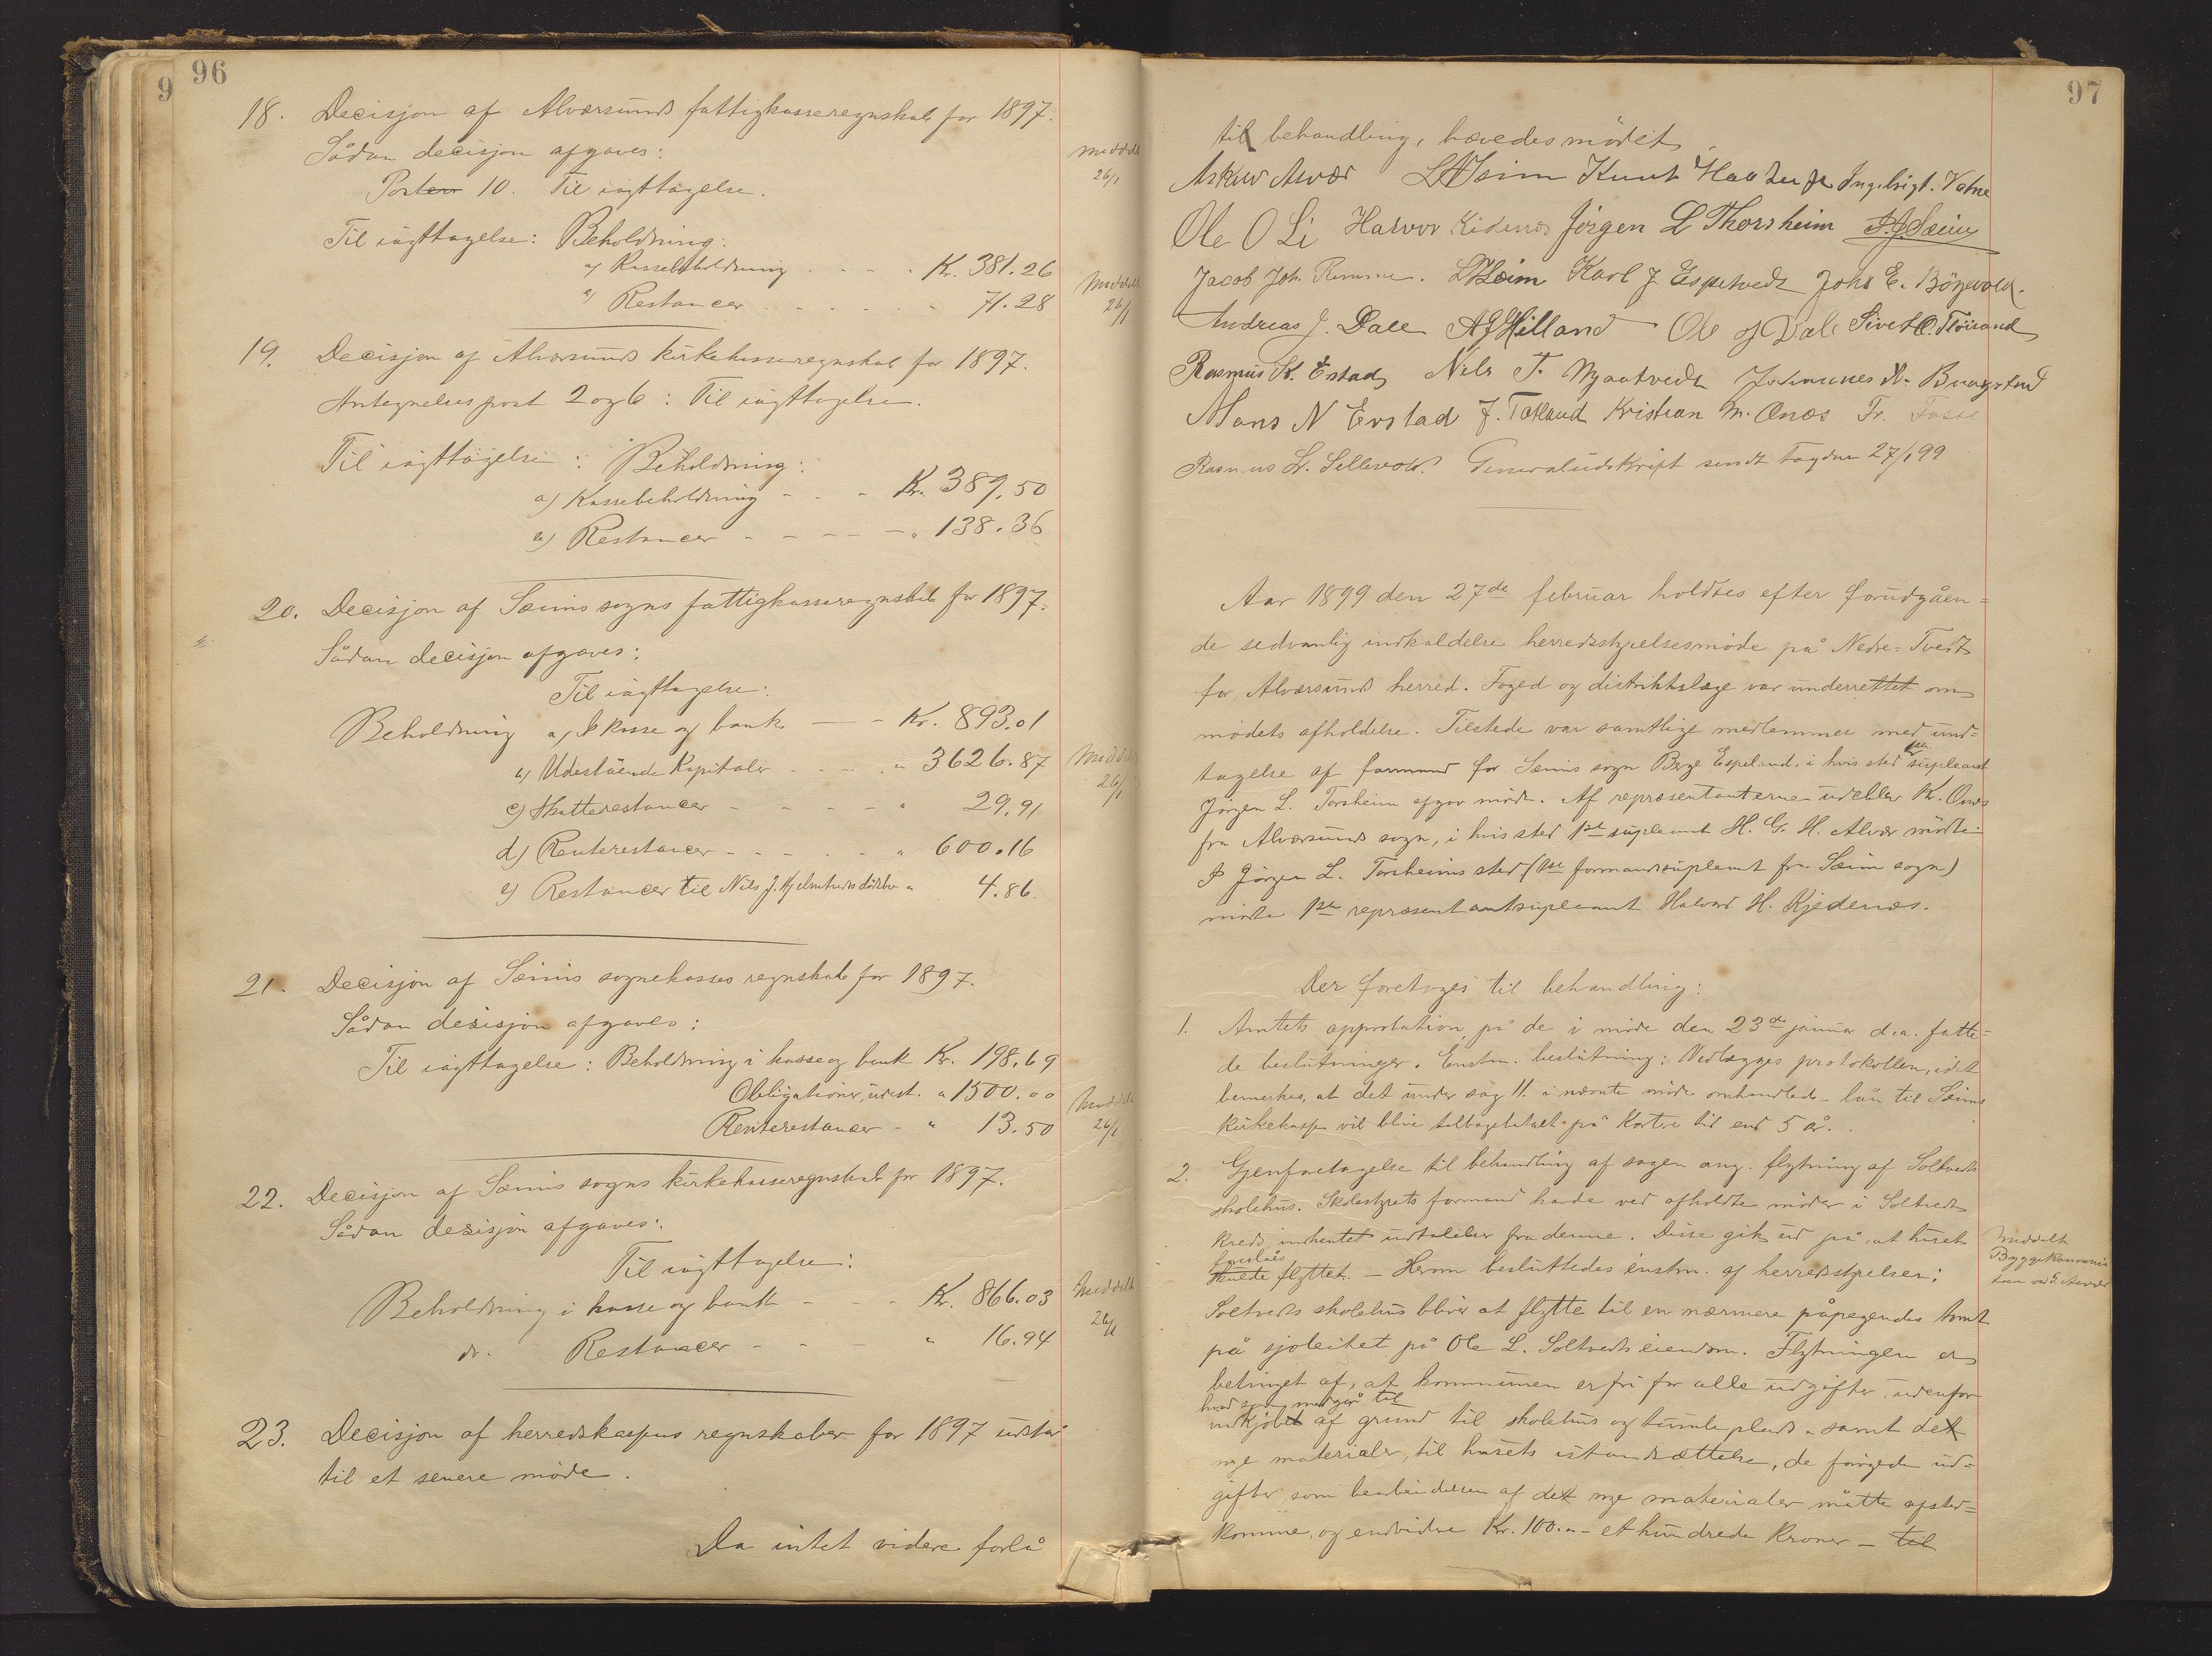 96
18. Decisjon af Alværsunds fattigkasseregnskab for 1897.
Sådan decisjon afgaves:
Posten 10. Til iagttagelse.
Til iagttagelse: Beholdning:
a) Kassebeholdning - - - Kr. 381.26
Restancer - - - - 71.28
meddelt
26/1
19. Decisjon af Alværsunds kirkekasseregnskab for 1897.
Antegnelsespost 2 og 6: Til iagttagelse.
Til iagttagelse: Beholdning:
a) Kassebeholdning - - - Kr. 389.50
b) Restancer - - - - " 138.36
Meddelt
26/1
20. Decisjon af Sæims sogns fattigkasseregnskab for 1897.
Sådan decisjon afgaves:
Til iagttagelse:
Beholdning a) I kasse og bank - - Kr. 893.01
b) Udestående Kapitaler - - " 3626.87
c) Skatterestancer - - - " 29.91
d) Renterestancer - - - " 600.16
e) Restancer til Nils J. dødsbo " 4.86
Meddelt
26/1
21. Decisjon af Sæims sognekasses regnskab for 1897.
Sådan desisjon afgaves:
Til iagttagelse: Beholdning i kasse og bank Kr. 198.69
Obligationer, udest. " 1500.00
Renterestancer - " 13.50
Meddelt
26/1
22. Decisjon af Sæims sogns kirkekasseregnskab for 1897.
Sådan desisjon afgaves:
Til iagttagelse:
Beholdning i kasse og bank - - - Kr. 866.03
do. Restancer - - - " 16.94
Meddelt
26/1
23. Decisjon af herredskassens regnskaber for 1897 udstår
til et senere møde.
Da intet videre forlå
97
til behandling, hævedes mødet
Askild Alvær L Sæim Knut Ingebrigt. Vatne
Ole O Li Halvor Kidenes Jørgen L Thorsheim
Jacob Joh. L Sæim Karl J. Espetvedt Johs E. Bøgevold.
Andreas J. Dale A J Hilland Ole J Dale Sivert O. Fløisand
Rasmus K. Erstad Nils T. Mjaatvedt Johannes
Mons N Erstad J. Tokland Kristian M. Onæs Fr. Fosse
Rasmus L. Sellevold. Generaludskript sendt fogden 27/1 99
Aar 1899 den 27de februar holdtes efter forudgåen=
de sedvanlig indkaldelse herredsstyrelsesmøde på Nedre-Tvedt
for Alværsunds herred. Foged og distriktslæge var underrettet om
mødets afholdelse. Tilstede var samtlige medlemmer med und=
tagelse af formand for Sæims sogn Berge Espeland, i hvis sted 1ste supleant
Jørgen L. Torsheim afgav møde. Af repræsentanterne udeblev Kr. Onæs
fra Alværsunds sogn, i hvis sted 1ste supleant H. G. H. Alvær mødte.
I Jørgen L. Torsheims sted (1ste formandsupleant fra Sæim sogn)
mødte 1ste repræsentantsupleant Halvard H. Kjedenæs.
Der foretoges til behandling:
1. Amtets approbation på de i møde den 23de januar d.a. fatte=
de beslutninger. Enstm. beslutning: Vedlægges protokollen, idet
bemerkes, at det under sag 11. i nævnte møde omhandlede lån til Sæims
kirkekasse vil blive tilbagebetalt på kortere tid end 5 år.
2. Gjenforetagelse til behandling af sagen ang. flytning af Soltvedts
skolehus. Skolestyrets formand havde ved afholdte møder i Soltvedt
kreds indhentet udtalelser fra denne. Disse gik ud på, at huset
foreslåes
skulde flyttet. - Herom besluttedes enstm. af herredsstyrelsen:
Soltvedts skolehus bliver at flytte til en nærmere påpegendes tomt
på sjøleitet på Ole L. Soltvedts eiendom. Flytningen er
betinget af, at kommunen er fri for alle udgifter udenfor
hvad som medgår til
indkjøbet af grund til skolehus og tumleplads, samt det
nye materialer til husets istandsættelse, de forøgede ud=
gifter som bearbeidelsen af det nye materialer måtte afsted=
komme, og endvidere Kr. 100.- et hundrede kroner - til
Meddelt
Byggekommis